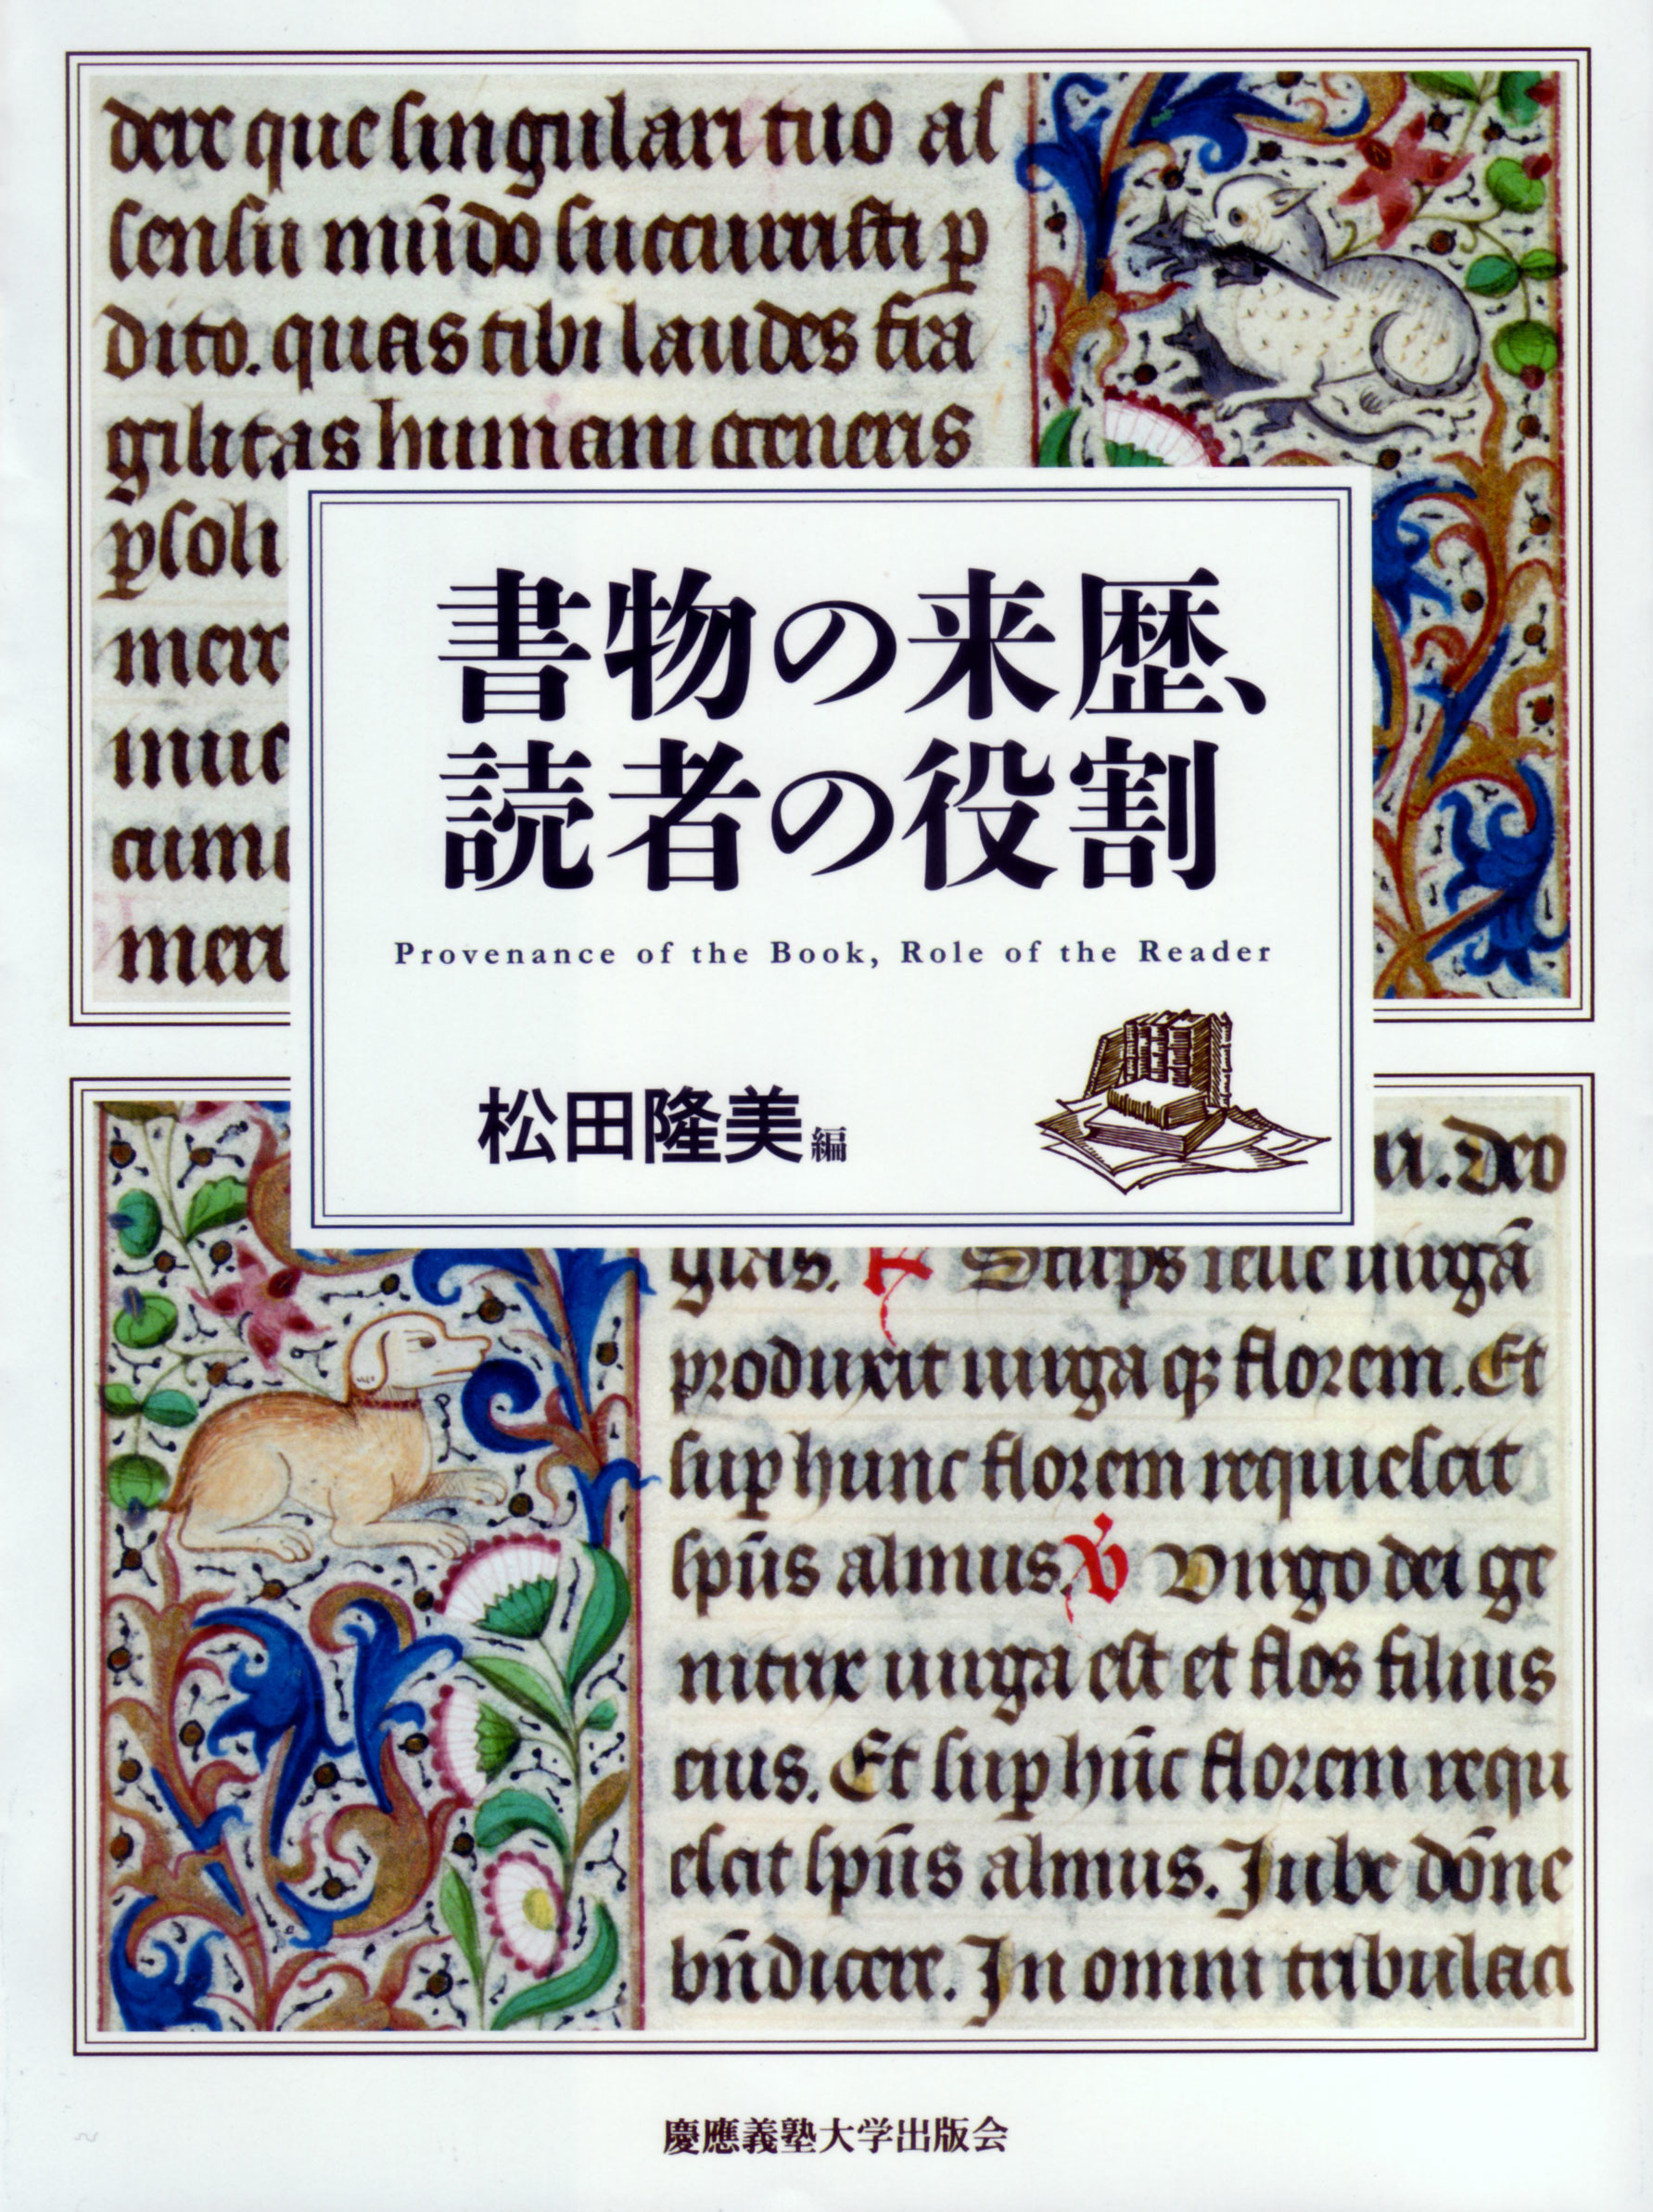 dere que singulari tuo as
sensu mūdo succurristi p
dito. quas tibi laudes fra
gilitas humani generis
psoli
mere
cumu
書物の来歴、
読者の役割
Provenance of the Book, Role of the Reader
松田隆美編
Deo
gias. R Stirps iesse uirgā
produxit uirga qꝫ florem. Et
sup hunc florem requiescit
spūs almus. V Virgo dei ge
nitrix uirga est et flos filius
eius. Et sup hūc florem requi
escit spūs almus. Iube dōne
bn̄dicere. In omni tribulaci
慶應義塾大学出版会